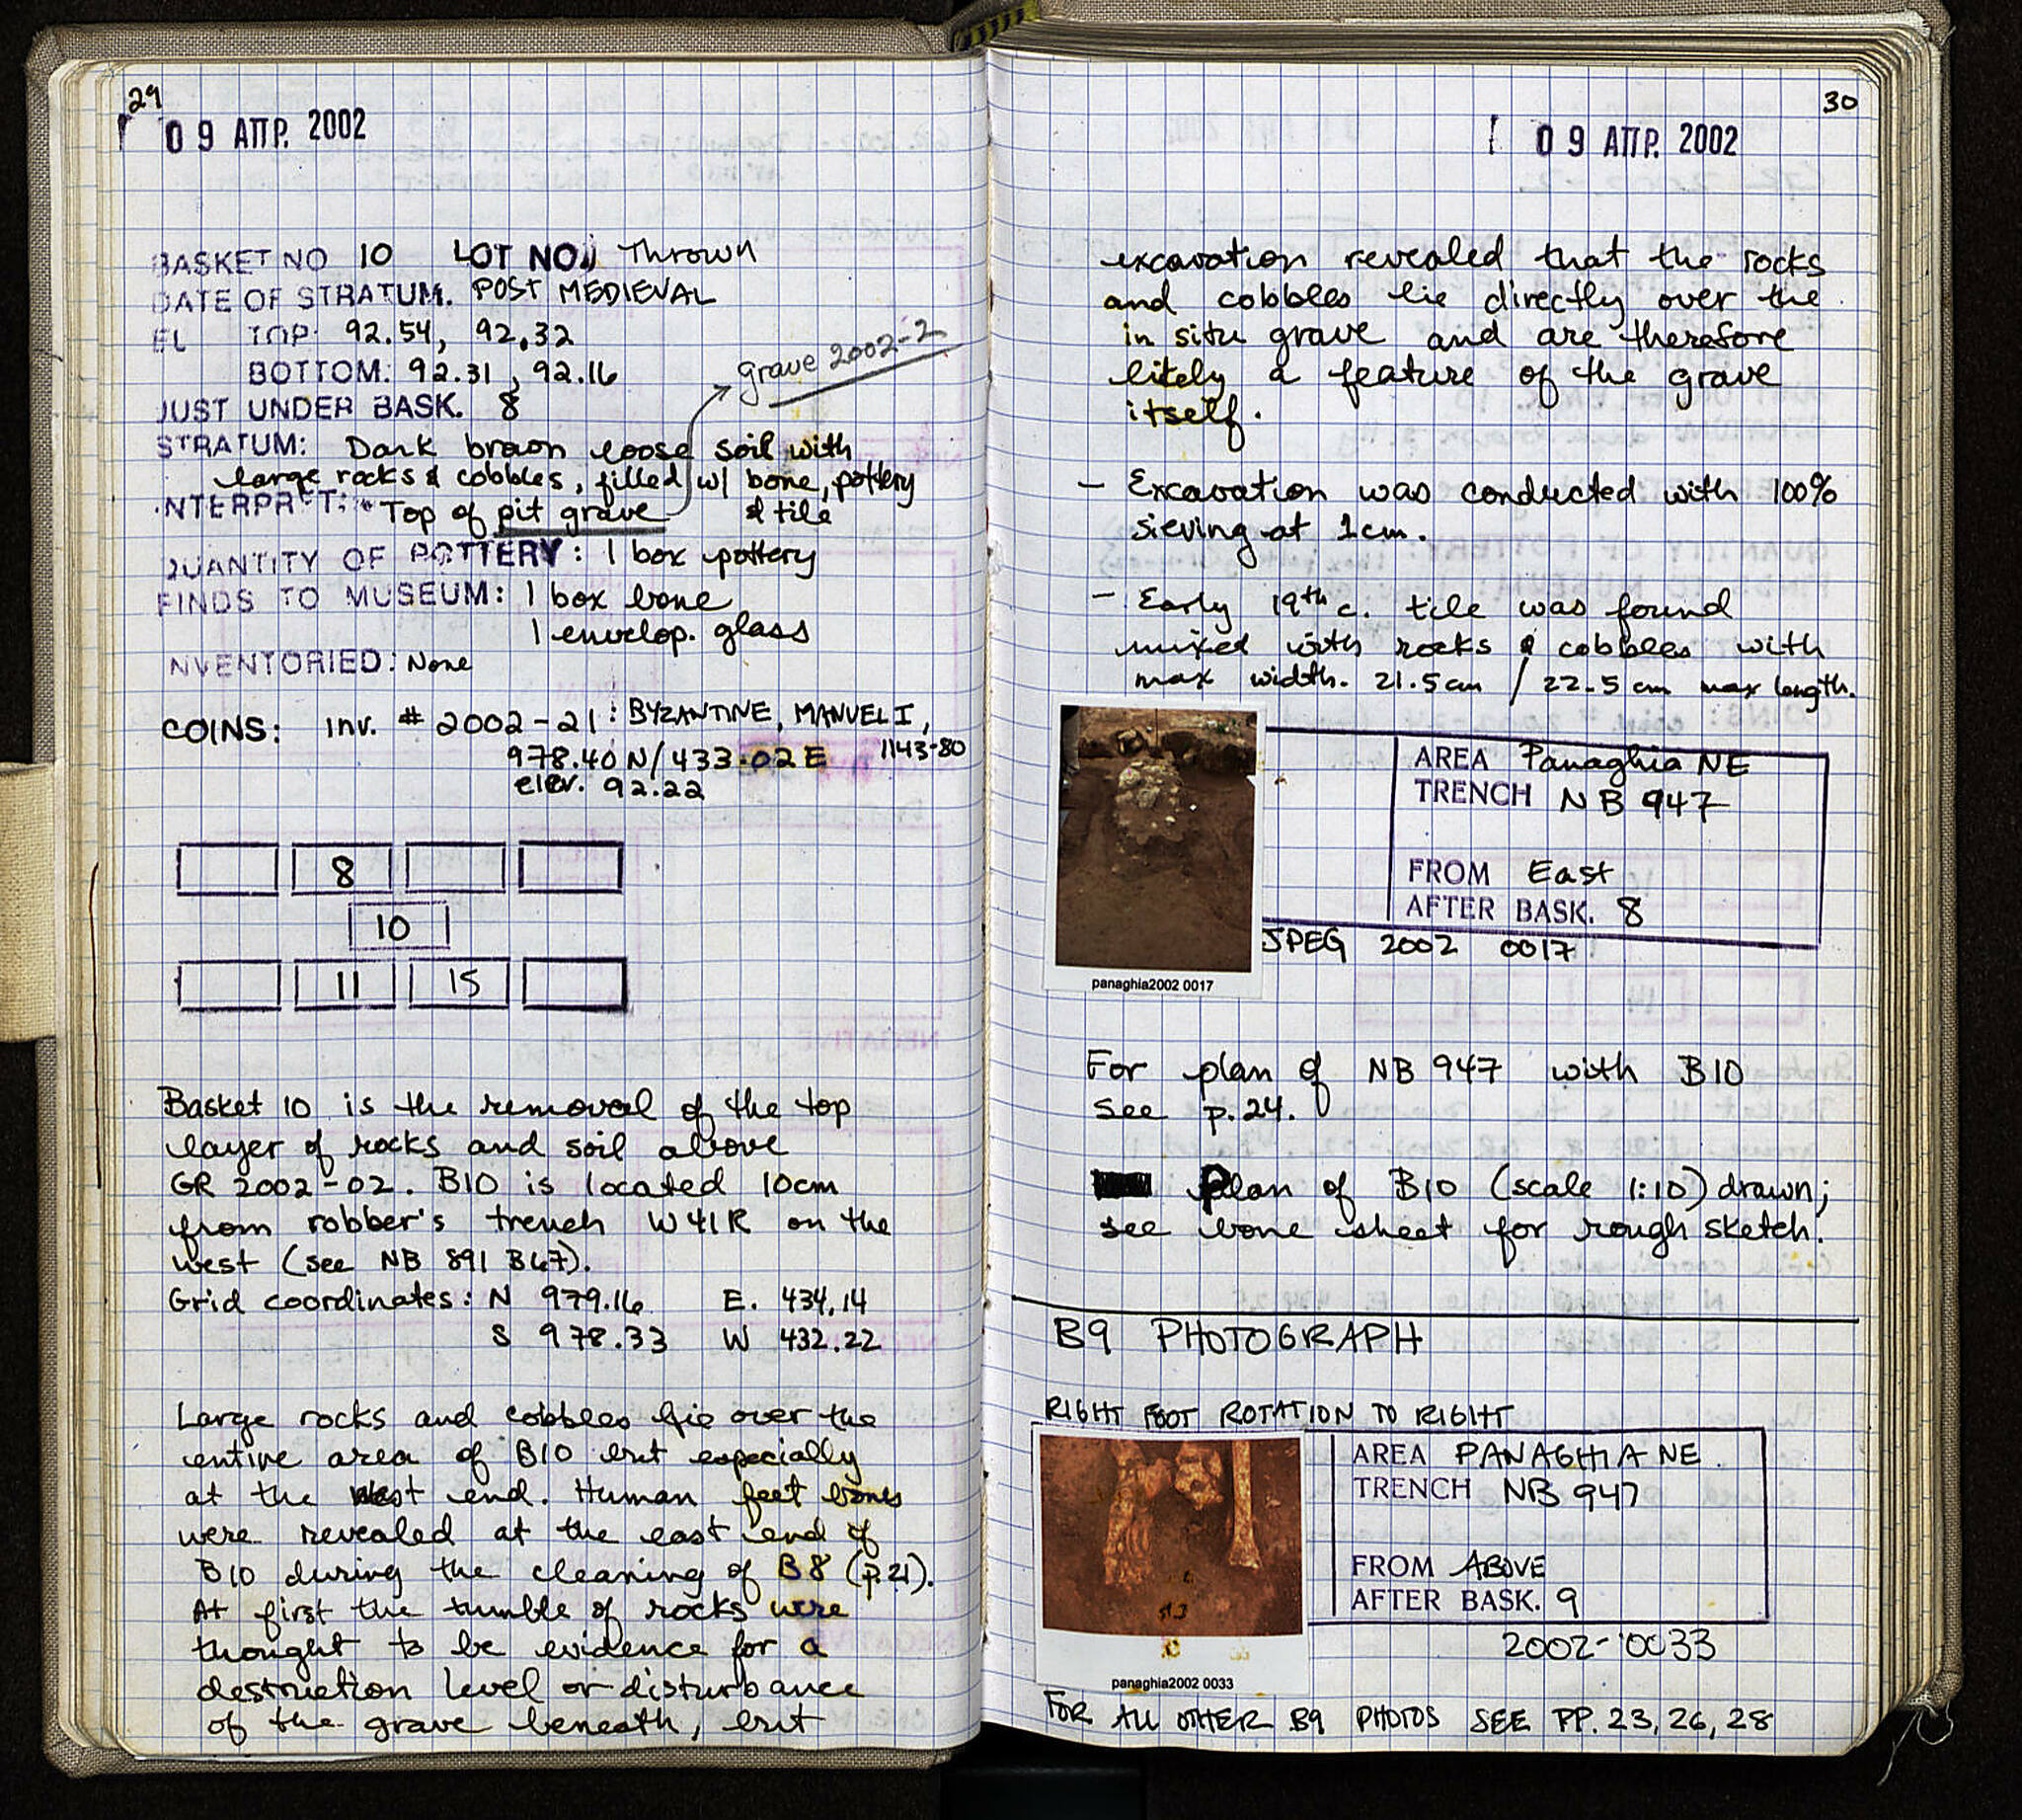 29
09 ΑΠΡ. 2002
BASKET NO 10 LOT NO. Thrown
DATE OF STRATUM. POST MEDIEVAL
EL TOP: 92.54, 92.32
BOTTOM: 92.31, 92.16
grave 2002-2
JUST UNDER BASK. 8
STRATUM: Dark brown loose soil with
large rocks & cobbles, filled w/ bone, pottery
& tile
NTERPRET: Top of pit grave
QUANTITY OF POTTERY: 1 box pottery
FINDS TO MUSEUM: 1 box bone
1 envelop. glass
NVENTORIED: None
COINS: inv. # 2002-21: BYZANTINE, MANUEL I,
1143-80
978.40 N/433.02 E
elev. 92.22
8
10
11 15
Basket 10 is the removal of the top
layer of rocks and soil above
GR 2002-02. B10 is located 10cm
from robber's trench W41R on the
west (see NB 891 B67).
Grid coordinates: N 979.16 E. 434.14
S 978.33 W 432.22
Large rocks and cobbles lie over the
entire area of B10 but especially
at the west end. Human feet bones
were revealed at the east end of
B10 during the cleaning of B8 (p.21).
At first the tumble of rocks were
thought to be evidence for a
destruction level or disturbance
of the grave beneath, but
30
09 ΑΠΡ. 2002
excavation revealed that the rocks
and cobbles lie directly over the
in situ grave and are therefore
likely a feature of the grave
itself.
- Excavation was conducted with 100%
sieving at 1cm.
- Early 19th c. tile was found
mixed with rocks & cobbles with
max width. 21.5cm / 22.5 cm max length.
AREA Panaghia NE
TRENCH NB 947
FROM East
AFTER BASK. 8
JPEG 2002 0017
panaghia2002 0017
For plan of NB 947 with B10
see p.24.
Plan of B10 (scale 1:10) drawn;
see bone sheet for rough sketch.
B9 PHOTOGRAPH
RIGHT FOOT ROTATION TO RIGHT
AREA PANAGHIA NE
TRENCH NB 947
FROM ABOVE
AFTER BASK. 9
2002-0033
panaghia2002 0033
FOR ALL OTHER B9 PHOTOS SEE PP. 23, 26, 28